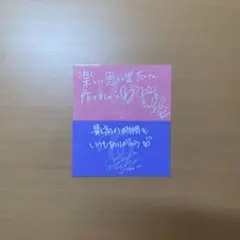 楽しい思い出たくさん
作りましょう♡
最高の時間を
いつもありがとう♡